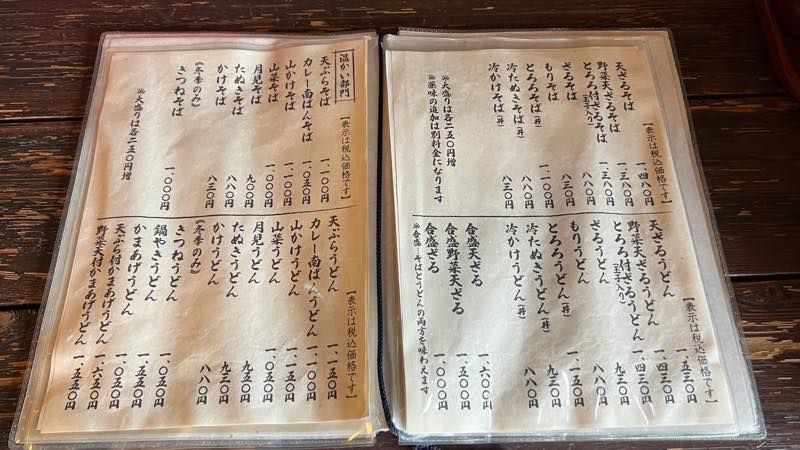 【表示は税込価格です】
天ざるそば 一、四八〇円
野菜天ざるそば 一、三八〇円
とろろ付ざるそば(玉子入り) 一、三八〇円
ざるそば 八八〇円
もりそば 八三〇円
とろろそば(丼) 一、一〇〇円
冷たぬきそば(丼) 八八〇円
冷かけそば(丼) 八三〇円
※大盛りは各二五〇円増
※薬味の追加は別料金になります
【表示は税込価格です】
天ざるうどん 一、五三〇円
野菜天ざるうどん 一、四三〇円
とろろ付ざるうどん(玉子入り) 一、四三〇円
ざるうどん 九三〇円
もりうどん 八八〇円
とろろうどん(丼) 一、一五〇円
冷たぬきうどん(丼) 九三〇円
冷かけうどん(丼) 八八〇円
合盛天ざる 一、六〇〇円
合盛野菜天ざる 一、五〇〇円
合盛ざる 一、〇〇〇円
※合盛…そばとうどんの両方を味わえます
温かい部門
【表示は税込価格です】
天ぷらそば 一、一〇〇円
カレー南ばんそば 一、〇五〇円
山かけそば 一、一〇〇円
山菜そば 一、〇〇〇円
月見そば 九〇〇円
たぬきそば 八八〇円
かけそば 八三〇円
《冬季のみ》
きつねそば 一、〇〇〇円
※大盛りは各二五〇円増
【表示は税込価格です】
天ぷらうどん 一、一五〇円
カレー南ばんうどん 一、一〇〇円
山かけうどん 一、一五〇円
山菜うどん 一、〇五〇円
月見うどん 九五〇円
たぬきうどん 九三〇円
かけうどん 八八〇円
《冬季のみ》
きつねうどん 一、〇五〇円
鍋やきうどん 一、五五〇円
かまあげうどん 一、〇五〇円
天ぷら付かまあげうどん 一、六五〇円
野菜天付かまあげうどん 一、五五〇円